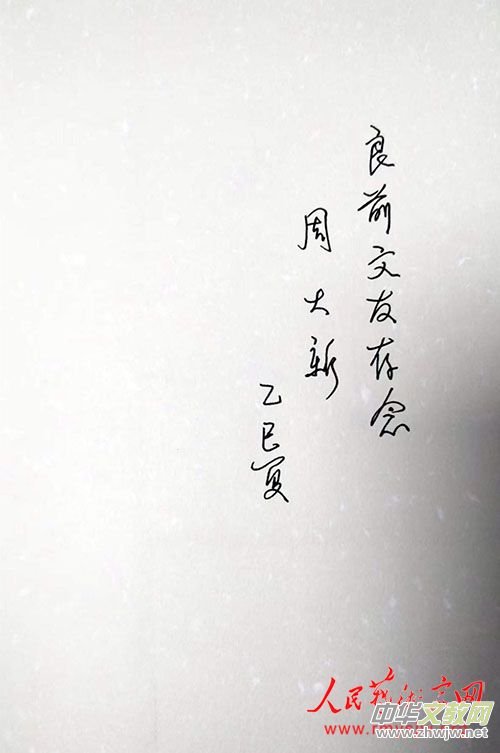 良前文友存念
周大新
乙巳夏
人民艺术家网
中华文教网
www.zhwjw.net